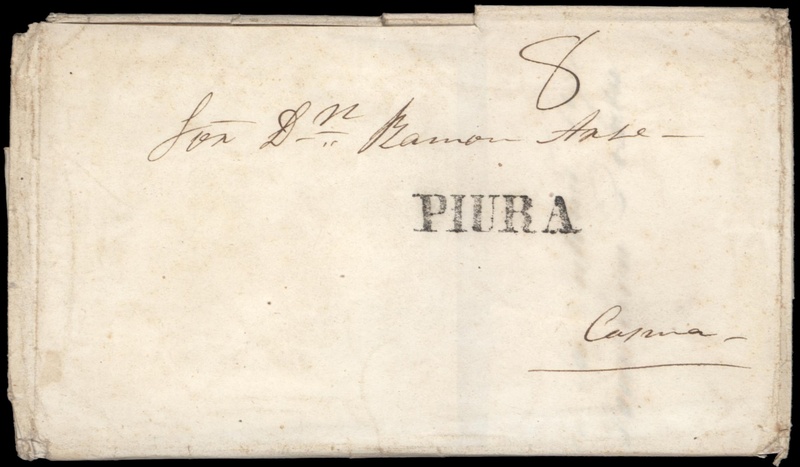 8
Sōr Dn Ramon Arse
PIURA
Casma